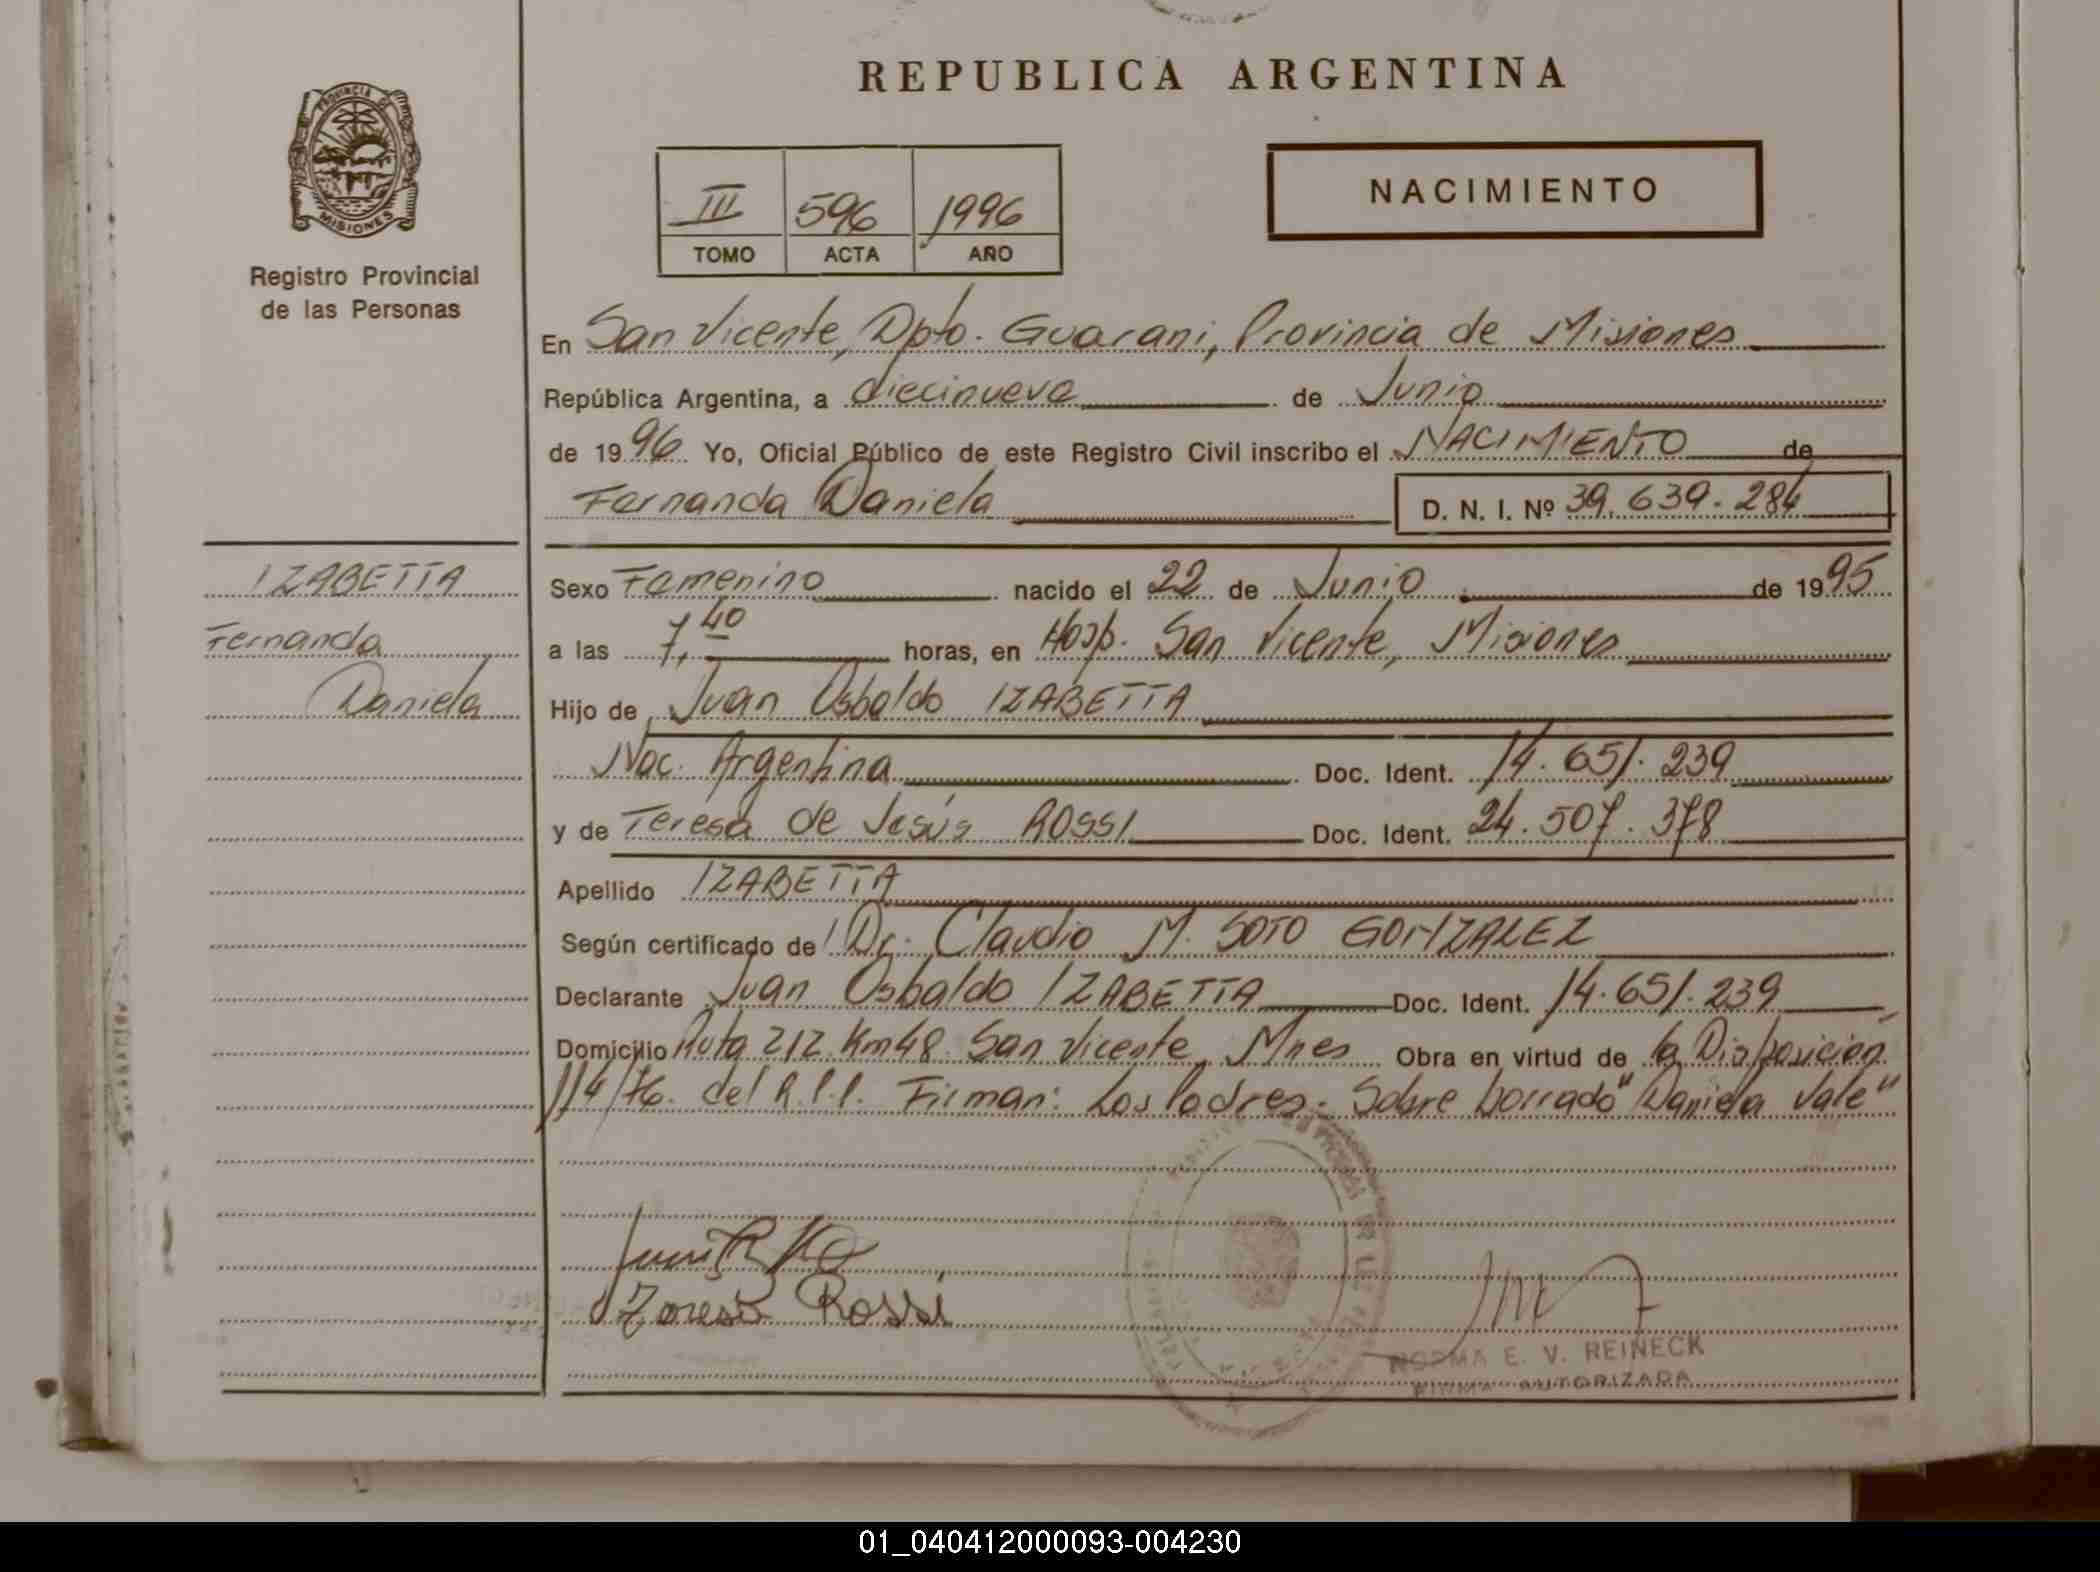 REPUBLICA ARGENTINA
PROVINCIA DE
MISIONES
Registro Provincial
de las Personas
III 596 1996
TOMO ACTA AÑO
NACIMIENTO
En San Vicente, Dpto. Guarani, Provincia de Misiones
República Argentina, a diecinueve de Junio
de 1996 Yo, Oficial Público de este Registro Civil inscribo el NACIMIENTO de
Fernanda Daniela D. N. I. Nº 39.639.284
IZABETTA
Fernanda
Daniela
Sexo Femenino nacido el 22 de Junio de 1995
a las 7,40 horas, en Hosp. San Vicente, Misiones
Hijo de Juan Osbaldo IZABETTA
Nac. Argentina Doc. Ident. 14.651.239
y de Teresa de Jesús ROSSI Doc. Ident. 24.507.378
Apellido IZABETTA
Según certificado de Dr. Claudio M. SOTO GONZALEZ
Declarante Juan Osbaldo IZABETTA Doc. Ident. 14.651.239
Domicilio Ruta 212 Km48 San Vicente, Mnes Obra en virtud de la Disposición
114/76. del R.P.P. Firman: Los Padres. Sobre borrado "Daniela Vale"
Teresa Rossi
NORMA E. V. REINECK
FIRMA AUTORIZADA
01_040412000093-004230